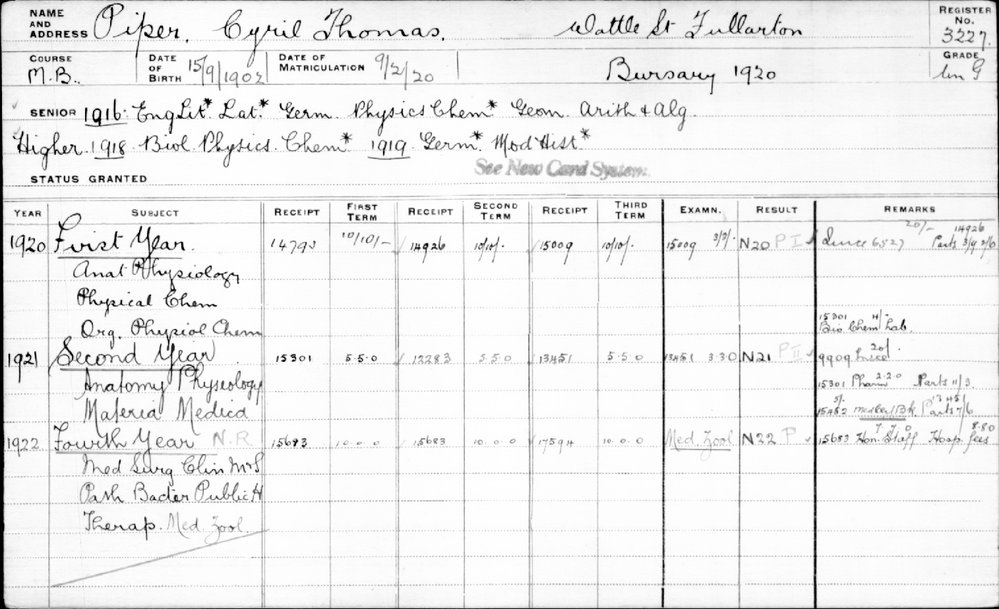 NAME AND ADDRESS Piper, Cyril Thomas. Wattle St Fullarton REGISTER No. 3227.
COURSE M.B. DATE OF BIRTH 15/9/1902 DATE OF MATRICULATION 9/2/20 Bursary 1920 GRADE
SENIOR 1916. Eng Lit* Lat.* Germ. Physics Chem* Geom. Arith & Alg.
Higher 1918 Biol. Physics. Chem* 1919 Germ.* Mod Hist.*
See New Card System.
STATUS GRANTED
YEAR SUBJECT RECEIPT FIRST TERM RECEIPT SECOND TERM RECEIPT THIRD TERM EXAMN. RESULT REMARKS
20/- 14926
1920 First Year. 10/10/- 14926 10/10/- 15009 10/10/- 15009 3/3/- N20 P I 6527 Parts
Anat Physiology
Physical Chem
Org. Physiol Chem 15301 Bio Chem Lab.
1921 Second Year 15301 5.5.0 5.5.0 13451 5.5.0 13451 3.3.0 N21 P II 9909 20/-
Anatomy Physiology 15301 Pharm 2.2.0 Parts 11/3
Materia Medica 5/- Parts 7/6
1922 Fourth Year N.R 15683 10.0.0 15683 10.0.0 17594 10.0.0 Med. Zool N22 P 15683 Hon. Staff 7.7.0 Hosp. fees 8.80
Med Surg Clin M&S
Path Bacter Public H
Therap. Med. Zool.